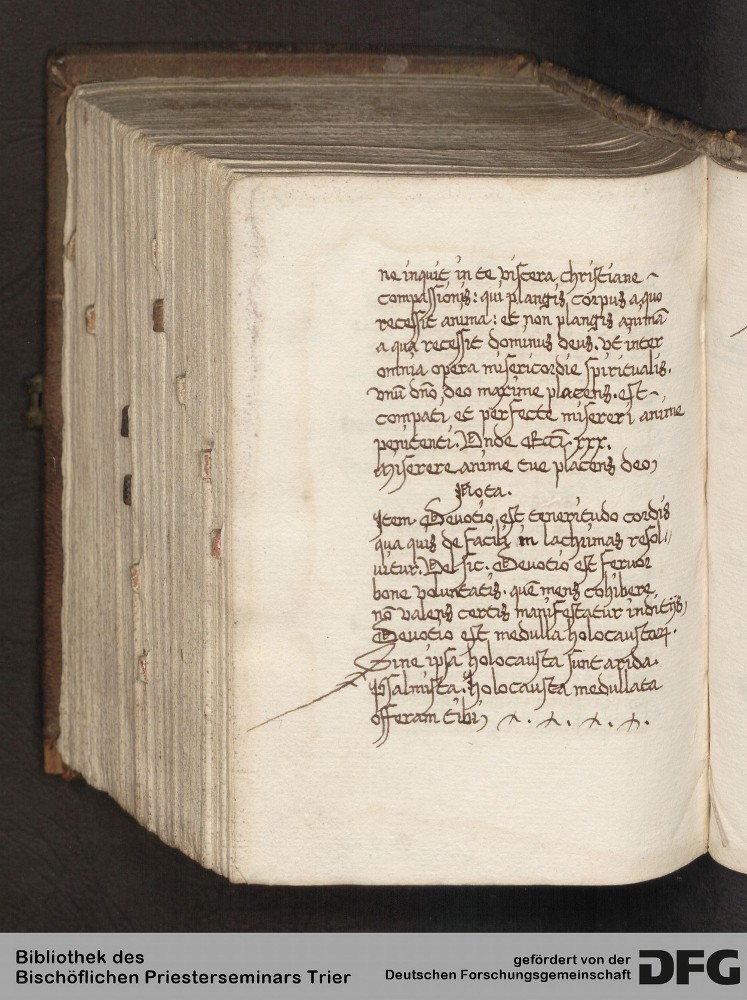 ne inquit in te viscera christiane
compassionis: qui plangis corpus a quo
recessit anima: et non plangis animā
a qua recessit dominus deus. Vt inter
omnia opera misericordie spiritualis.
vnū dño deo maxime placens. est
compati et perfecte misereri anime
penitenti. Vnde Eccī. xxx.
Miserere anime tue placens deo
Nota.
Item. Deuotio est teneritudo cordis
qua quis de facili in lachrimas resol//
uitur. Vel sic. Deuotio est feruor
bone voluntatis. quē mens cohibere
nō valens certis manifestatur inditijs
Deuotio est medulla holocaustoꝝ.
Sine ipsa holocausta sunt arida.
Psalmista. Holocausta medullata
offeram tibi
Bibliothek des
Bischöflichen Priesterseminars Trier
gefördert von der
Deutschen Forschungsgemeinschaft
DFG